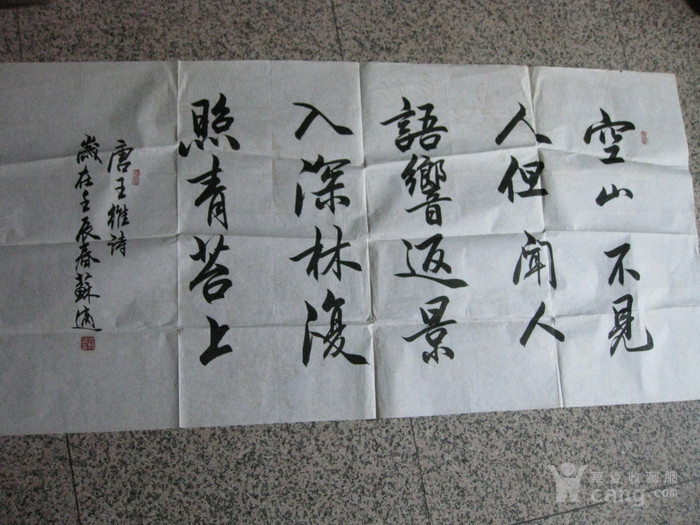 空山不見
人但聞人
語響返景
入深林復
照青苔上
唐王維詩
歲在壬辰春蘇適
華夏收藏網
cang.com